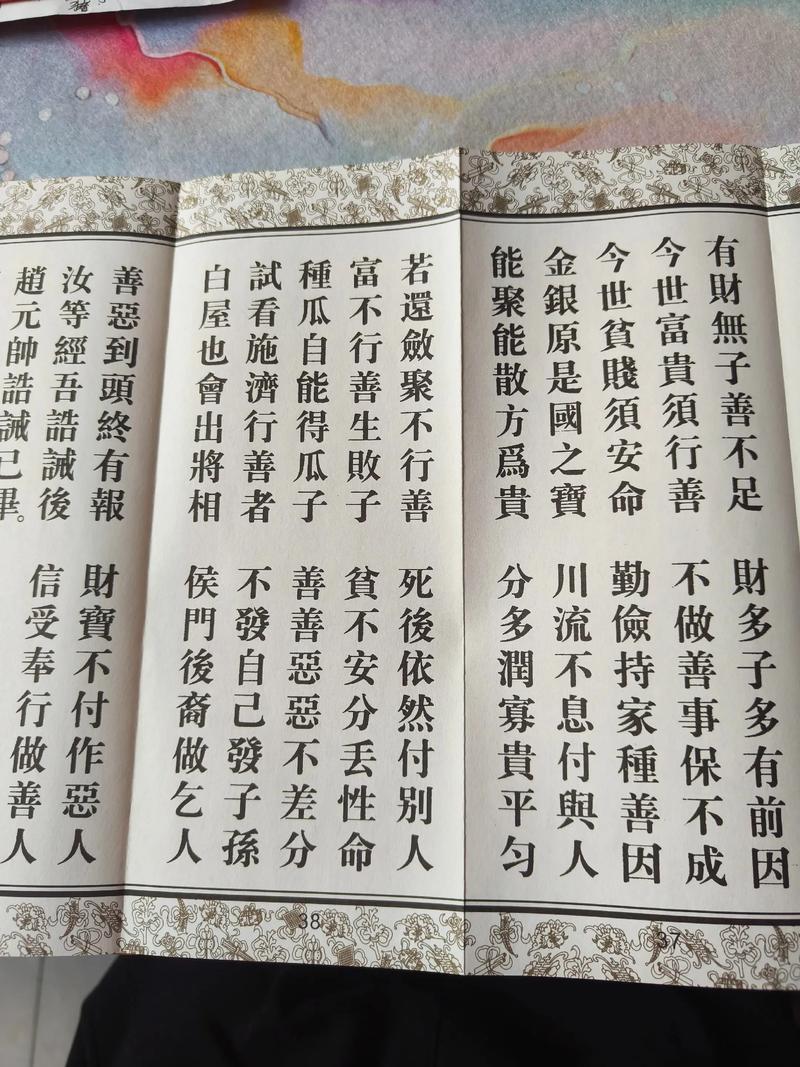 有財無子善不足 財多子多有前因
今世富貴須行善 不做善事保不成
今世貧賤須安命 勤儉持家種善因
金銀原是國之寶 川流不息付與人
能聚能散方爲貴 分多潤寡貴平匀
37
若還斂聚不行善 死後依然付別人
富不行善生敗子 貧不安分丟性命
種瓜自能得瓜子 善善惡惡不差分
試看施濟行善者 不發自己發子孫
白屋也會出將相 侯門後裔做乞人
38
善惡到頭終有報 財寶不付作惡人
汝等經吾誥誡後 信受奉行做善人
趙元帥誥誡已畢。